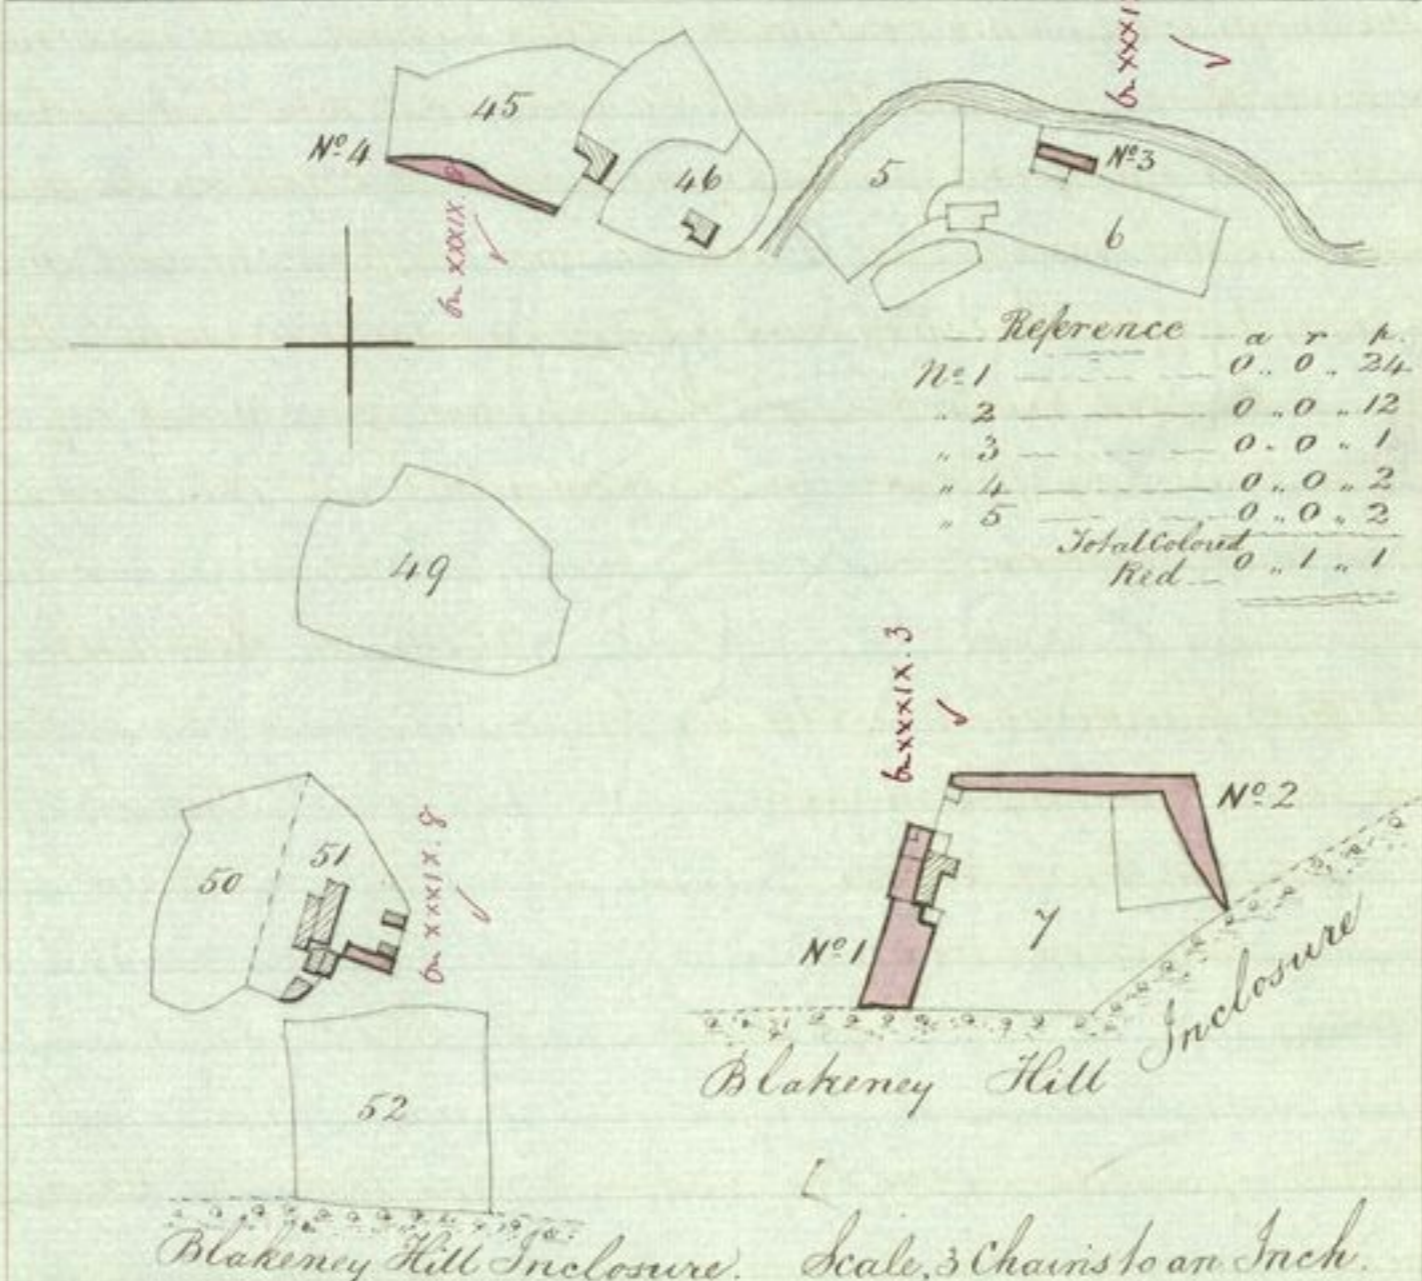 45
Nº 4
46
5
Nº 3
6
Reference a r p.
Nº 1 0 .. 0 .. 24
" 2 0 .. 0 .. 12
" 3 0 .. 0 .. 1
" 4 0 .. 0 .. 2
" 5 0 .. 0 .. 2
Total Colored
Red 0 .. 1 .. 1
49
xxxix. 3
Nº 2
50
51
xxxix. 8
Nº 1
7
Inclosure
Blakeney Hill
52
Blakeney Hill Inclosure.
Scale, 3 Chains to an Inch.